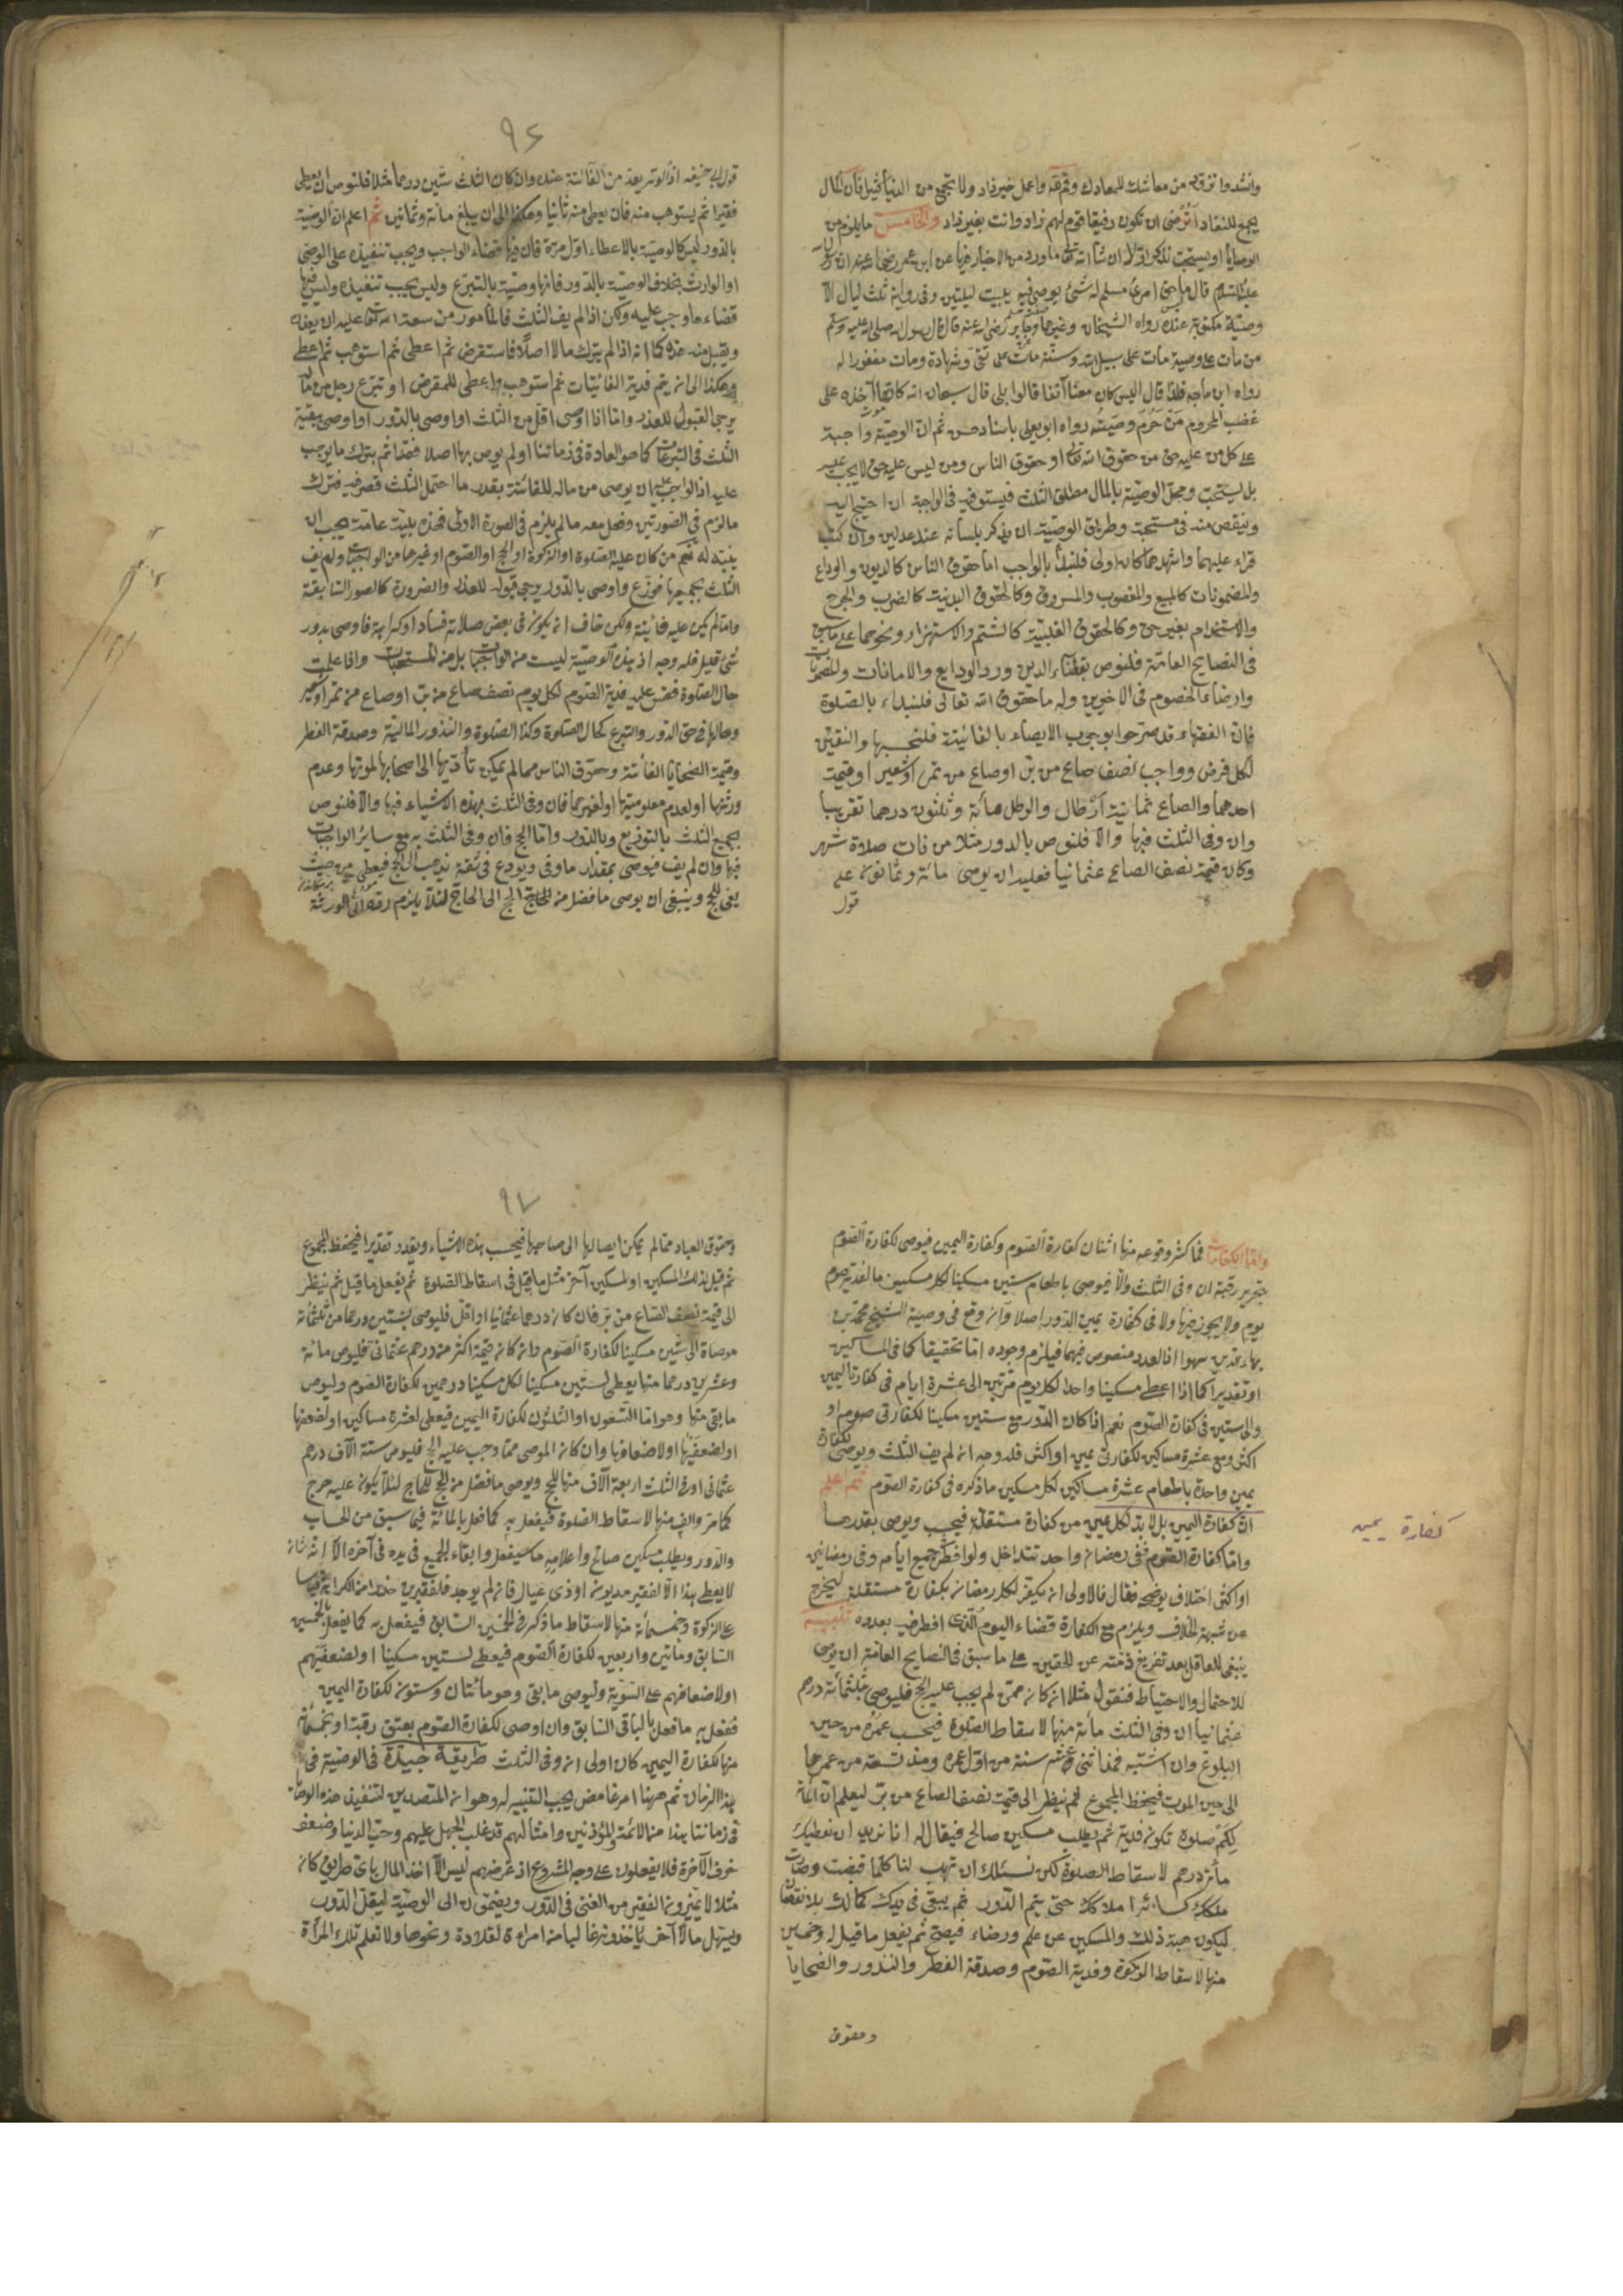 وانشدوا تزود من معاشك للمعادك وقم لله واعمل خير زاد ولا تجمع من الدنيا كثيرا فان المال
يجمع للنفاد أترضى ان تكون رفيقا قوم لهم زاد وانت بغير زاد والخامس ما يلزم من
الوصايا او يستحب نذكر اولا ان شاء الله تعالى ما ورد من الاخبار فيها عن ابن عمر رضى الله عنه ان رسول الله
عليه السلام قال ما حق امرئ مسلم له شئ يوصى فيه يبيت ليلتين وفى رواية ثلث ليال الا
وصيته مكتوبة عنده رواه الشيخان وغيرهما وجابر رضى الله عنه قال قال رسول الله صلى الله عليه وسلم
من مات على وصية مات على سبيل الله وسنة مات على تقى وشهادة ومات مغفورا له
رواه ابن ماجه قال اليس كان معنا آنفا قالوا بلى قال سبحان الله كانها اخذه على
غضب المحروم من حرم وصيته رواه ابو يعلى باسناد حسن ثم ان الوصية واجبة
على كل من عليه حق من حقوق الله تعالى او حقوق الناس ومن ليس عليه حق لا يجب عليه
بل يستحب ومحل الوصية بالمال مطلق الثلث فيستوفيه فى الواجبة ان احتيج اليه
وينقص منه فى مستحبة وطريق الوصية ان يذكر بلسانه عند عدلين وان كتب
قراء عليهما واشهدهما كان اولى فليبدأ بالواجب اما حقوق الناس كالديون والودايع
والمضمونات كالمبيع والمغصوب والمسروق وكالحقوق البدنية كالضرب والجرح
والاستخدام بغير حق وكالحقوق القلبية كالشتم والاستهزاء ونحوهما على ما سبق
فى النصايح العامة فليوص بقضاء الدين ورد الودايع والامانات والمضمونات
وارضاء الخصوم فى الاخيرين وله ما حقوق الله تعالى فليبداء بالصلوة
فان الفقهاء قد صرحوا بوجوب الايصاء بالفائتة فليحسبها واليقين
لكل فرض وواجب نصف صاع من بر او صاع من تمر او شعير او قيمة
احدهما والصاع ثمانية ارطال والرطل مائة وثلثون درهما تقريبا
وان وفى الثلث فيها والا فليوص بالدور مثلا من فات صلاة شهر
وكان قيمة نصف الصاع عثمانيا فعليه ان يوصى مائة وثمانون على
قول
٩٦
قول ابى حنيفه اذ الوتر يعد من الفائتة عنده وان كان الثلث ستين درهما مثلا فليوص ان يعطى
فقيرا ثم يستوهب منه فان يعطى منه ثانيا وهكذا الى ان يبلغ مائة وثمانين ثم اعلم ان الوصية
بالدور ليس كالوصية بالاعطاء اول مرة فان فيها قضاء الواجب ويجب تنفيذه على الوصى
او الوارث بخلاف الوصية بالدور فانها وصية بالتبرع وليس يجب تنفيذه وليس فيها
قضاء ما وجب عليه ولكن اذا لم يف الثلث فالمأمور من سعة الله تعالى عليه ان يعفو
ويقبل منه هذه كما انه اذا لم يترك مالا اصلا فاستقرض ثم اعطى ثم استوهب ثم اعطى
وهكذا الى ان يتم فدية الفائتات ثم استوهب واعطى للمقرض او تبرع رجل من ماله
يرجى القبول للعذر واما اذا اوصى اقل من الثلث او اوصى بالدور او اوصى ببقية
الثلث فى التبرعات كما هو العادة فى زماننا او لم يوص بها اصلا فقد اثم بترك ما يوجب
عليه اذ الواجب عليه ان يوصى من ماله للفائتة بقدر ما احتمل الثلث قصر فيه فترك
ما لزم فى الصورتين وفعل معه ما لم يلزم فى الصورة الاولى فهذه بلية عامة يجب ان
ينبه له نعم من كان عليه الصلوة او الزكوة او الحج او الصوم او غيرهما من الواجبات ولم يف
الثلث بجميعها فوزع واوصى بالدور يرجى قبوله للعذر والضرورة كالصور السابقة
واما لم يكن عليه فائتة ولكن خاف ان يكون فى بعض صلاته فساد او كراهة فاوصى بدور
شئ قليل فله وجه اذ هذه الوصية ليست من الواجبات بل من المستحبات واذا علمت
حال الصلوة فقس عليه فدية الصوم لكل يوم نصف صاع من بر او صاع من تمر او شعير
وحالها فى حق الدور والتبرع كحال الصلوة وكذا الصلوة والنذور المالية وصدقة الفطر
وقيمة الضحايا الفائتة وحقوق الناس مما لم يمكن تأديها الى اصحابها لموتها وعدم
ورثتها او لعدم معلوميتها او لغيرهما فان وفى الثلث بهذه الاشياء فبها والا فليوص
بجميع الثلث بالتوزيع وبالدور واما الحج فان وفى الثلث به مع ساير الواجبات
فبها وان لم يف فيوصى بمقدار ما وفى ويودع فى ثقة يذهب الى الحج فيعطى من حيث
يفى للحج وينبغى ان يوصى ما فضل من الحج الى الحاج لئلا يلزم رده الى الورثة
واما الكفارات فما كثر وقوعه منها اثنان كفارة الصوم وكفارة اليمين فيوصى لكفارة الصوم
بتحرير رقبة ان وفى الثلث والا فيوصى باطعام ستين مسكينا لكل مسكين ما لفدية صوم
يوم ولا يجوز فيها ولا فى كفارة يمين الدور اصلا وان وقع فى وصية الشيخ محمد بن
بهاء الدين سهوا اذ العدد منصوص فيهما فيلزم وجوده اما تحقيقا كما فى المساكين
او تقديرا كما اذا اعطى مسكينا واحدا لكل يوم مرتين الى عشرة ايام فى كفارة اليمين
والى ستين فى كفارة الصوم نعم اذا كان الدور مع ستين مسكينا لكفارتى صوم او
اكثر ومع عشرة مساكين لكفارتى يمين او اكثر فله وجه ان لم يف الثلث ويوصى لكفارة
يمين واحدة باطعام عشرة مساكين لكل مسكين ما ذكره فى كفارة الصوم ثم اعلم
ان كفارة اليمين بل لا بد لكل يمين من كفارة مستقلة فيحسب ويوصى بقدرها
واما كفارة الصوم ففى رمضان واحد تتداخل ولو افطر جميع ايام وفى رمضانين
او اكثر اختلاف يوضحه فقال فالاولى ان يكفر لكل رمضان بكفارة مستقلة ليخرج
عن شبهة الخلاف ويلزم مع الكفارة قضاء اليوم الذى افطر فيه بعدده تنبيه
ينبغى للعاقل بعد تفريغ ذمته عن الحقين على ما سبق فى النصايح العامة ان يوصى
للاحتمال والاحتياط فنقول مثلا ان كان ممن لم يجب عليه الحج فليوص بثلثمائة درهم
عثمانيا ان وفى الثلث مائة منها لاسقاط الصلوة فيحسب عمره من حين
البلوغ وان اشتبه فمن اثنى عشر سنة من اول عمره ومنذ تسعة من عمرها
الى حين الموت فيحفظ المجموع ثم ينظر الى قيمة نصف الصاع من بر ليعلم ان المائة
لكم صلوة تكون فدية ثم يطلب مسكين صالح فيقال له انا نريد ان نعطيك
مائة درهم لاسقاط الصلوة لكن نسئلك ان تهب لنا كلما قبضت وصارت
ملكك كسائر املاكك حتى يتم الدور ثم يبقى فى يدك كمالك بلا نقصان
ليكون هبة ذلك والمسكين عن علم ورضاء فيصح ثم يفعل ما قيل له وخمسين
منها لاسقاط الزكوة وفدية الصوم وصدقة الفطر والنذور والضحايا
وحقوق
كفارة يمين
٩٧
وحقوق العباد مما لم يمكن ايصالها الى صاحبها فيحسب هذه الاشياء ويقدر تقديرا فيحفظ المجموع
ثم قيل لذلك المسكين او لمسكين آخر مثل ما قيل فى اسقاط الصلوة ثم يفعل ما قيل ثم ينظر
الى قيمة نصف الصاع من بر فان كان درهما عثمانيا او اقل فليوص بستين درهما من ثلثمائة
موصاة الى ستين مسكينا لكفارة الصوم وان كان قيمة اكثر من درهم عثمانى فليوص مائة
وعشرين درهما منها يعطى لستين مسكينا لكل مسكينا درهمين لكفارة الصوم وليوص
ما بقى منها وهو اما التسعون او الثلثون لكفارة اليمين فيعطى لعشرة مساكين او لضعفها
او لضعفيها او لاضعافها وان كان الموصى مما وجب عليه الحج فليوص ستة الآف درهم
عثمانى او فى الثلث اربعة الآف منها للحج ويوصى ما فضل من الحج للحاج لئلا يكون عليه حرج
كما مر والف منها لاسقاط الصلوة فيفعل به كما فعل بالمائة فيما سبق من الحساب
والدور ويطلب مسكين صالح واعلامه ما سيفعل وابقاء الجميع فى يده فى آخره الا انه
لا يعطى هذا الا لفقير مديون او ذى عيال فان لم يوجد فلفقيرين حذرا من الكراهة قياسا
على الزكوة وخمسمائة منها لاسقاط ما ذكر فى الخمسين السابق فيفعل به كما يفعل بالخمسين
السابق ومأتين واربعين لكفارة الصوم فيعطى لستين مسكينا او لضعفيهم
او لاضعافهم على السوية وليوصى ما بقى وهو مائتان وستون لكفارة اليمين
ففعل به ما فعل بالباقى السابق وان اوصى لكفارة الصوم بعتق رقبة او بخمسمائة
منها لكفارة اليمين كان اولى ان وفى الثلث طريقة جيدة فى الوصية فى
هذا الزمان ثم ههنا امر غامض يجب التنبيه له وهو ان المتصدين لتنفيذ هذه الوصايا
فى زماننا هذا من الائمة والمؤذنين وامثالهم قد غلب الجهل عليهم وحب الدنيا وضعف
خوف الآخرة فلا يفعلون على وجه المشروع اذ غرضهم ليس الا اخذ المال باى طريق كان
مثلا لا يميزون الفقير من الغنى فى الدور ويضمون الى الوصية ليقل الدور
ويسهل مالا آخر يأخذونها غالبا من امراءة لقلادة ونحوها ولا تعلم تلك المرأة